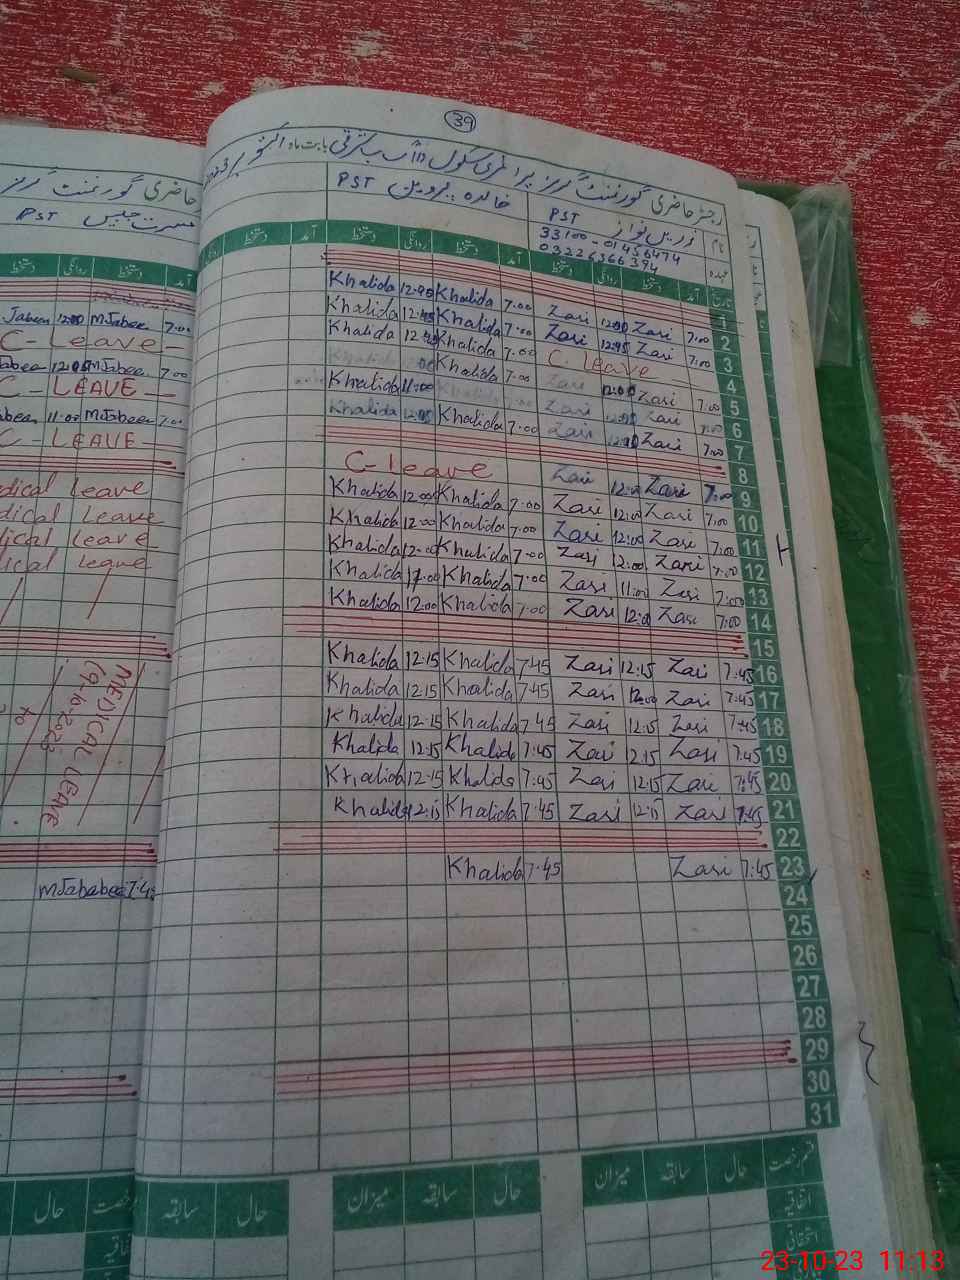 39
رجسٹر حاضری گورنمنٹ گرلز پرائمری سکول بابت ماہ اکتوبر 2023
نام زرین نواز PST خالدہ پروین PST
33100-01456474
عہدہ 03226366394
تاریخ آمد دستخط روانگی دستخط آمد دستخط روانگی دستخط آمد دستخط
1
Khalida Khalida 7:00 Zari 12:00 Zari 7:00 2
Khalida 12:45 Khalida 7:00 Zari 12:45 Zari 7:00 3
Khalida Khalida 7:00 C. leave 4
Khalida 7:00 Zari 12:00 Zari 7:00 5
Khalida 11:00 Zari Zari 7:00 6
Khalida Khalida 7:00 Zari Zari 7:00 7
8
C-leave Zari 12:00 Zari 7:00 9
Khalida 12:00 Khalida 7:00 Zari 12:00 Zari 7:00 10
Khalida 12:00 Khalida 7:00 Zari 12:00 Zari 7:00 11
Khalida 12:00 Khalida 7:00 Zari 12:00 Zari 7:00 12
Khalida 11:00 Khalida 7:00 Zari 11:00 Zari 7:00 13
Khalida 12:00 Khalida 7:00 Zari 12:00 Zari 7:00 14
15
Khalida 12:15 Khalida 7:45 Zari 12:15 Zari 7:45 16
Khalida 12:15 Khalida 7:45 Zari Zari 7:45 17
Khalida 12:15 Khalida 7:45 Zari 12:15 Zari 7:45 18
Khalida 12:15 Khalida 7:45 Zari 12:15 Zari 7:45 19
Khalida 12:15 Khalida 7:45 Zari 12:15 Zari 7:45 20
Khalida 12:15 Khalida 7:45 Zari 12:15 Zari 7:45 21
22
Khalida 7:45 Zari 7:45 23
24
25
26
27
28
29
30
31
قسم رخصت حال سابقہ میزان حال سابقہ میزان حال سابقہ
اتفاقیہ
استحقاقی
حاضری گورنمنٹ گرلز
مسرت جبیں PST
آمد دستخط روانگی دستخط
Jabeen 12:00 MJabeen 7:00
C-Leave
12:05 MJabeen 7:00
C-LEAVE
11:00 MJabeen 7:00
C-LEAVE
dical leave
dical Leave
dical leave
ical leave
MEDICAL LEAVE
to
7:45
رخصت حال
23-10-23 11:13